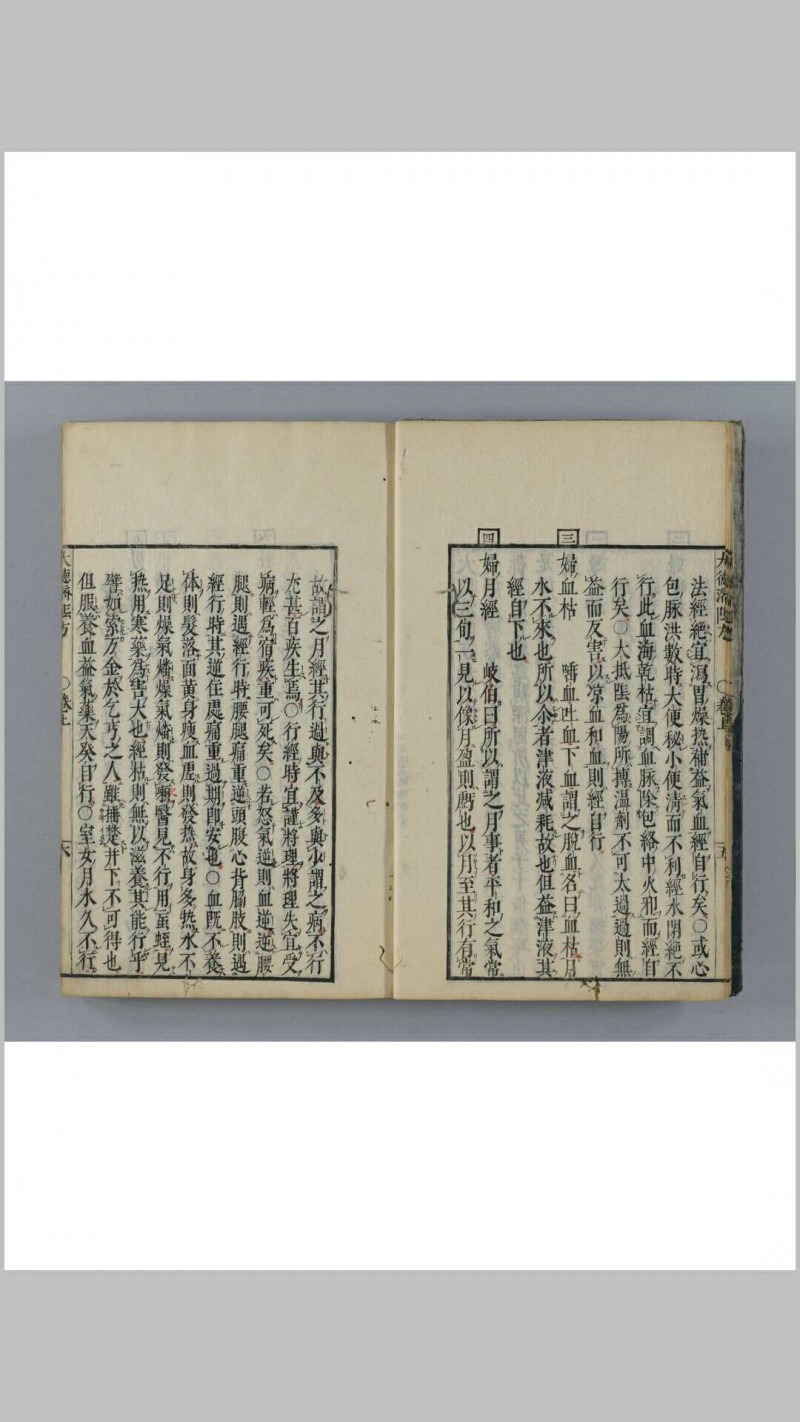 法經絶宜瀉胃燥熱補益氣血經自行矣○或心
包脉洪數時大便秘小便淸而不利經水閉絶不
行此血海乾枯宜調血脉除包絡中火邪而經自
行矣○大抵陰爲陽所搏溫劑不可太過過則無
益而反害以凉血和血則經自行
三
婦血枯 嗜血吐血下血謂之脫血名曰血枯月
水不來也所以尒者津液減耗故也但益津液其
經自下也
四
婦月經 岐伯曰所以謂之月事者平和之氣常
以三旬一見以像月盈則虧也以月至其行有常
故謂之月經其行過與不及多與少謂之病不行
尤甚百疾生焉○行經時宜謹將理將理失宜受
病輕爲宿疾重可死矣○若怒氣逆則血逆逆腰
腿則遇經行時腰腿痛重逆頭腹心背脇肢則遇
經行時其逆住處痛重過期卽安也○血旣不養
体則髮落面黃身瘦血虛則發熱故身多熱水不
足則燥氣燔燥氣燔則發嗽醫見不行用䖟蛭見
熱用寒藥爲害大也經枯則無以滋養其能行乎
譬如索万金於乞丐之人雖捶楚幷下不可得也
但服養血益氣藥天癸自行○室女月水久不行
大德濟陰方 ○卷上 六